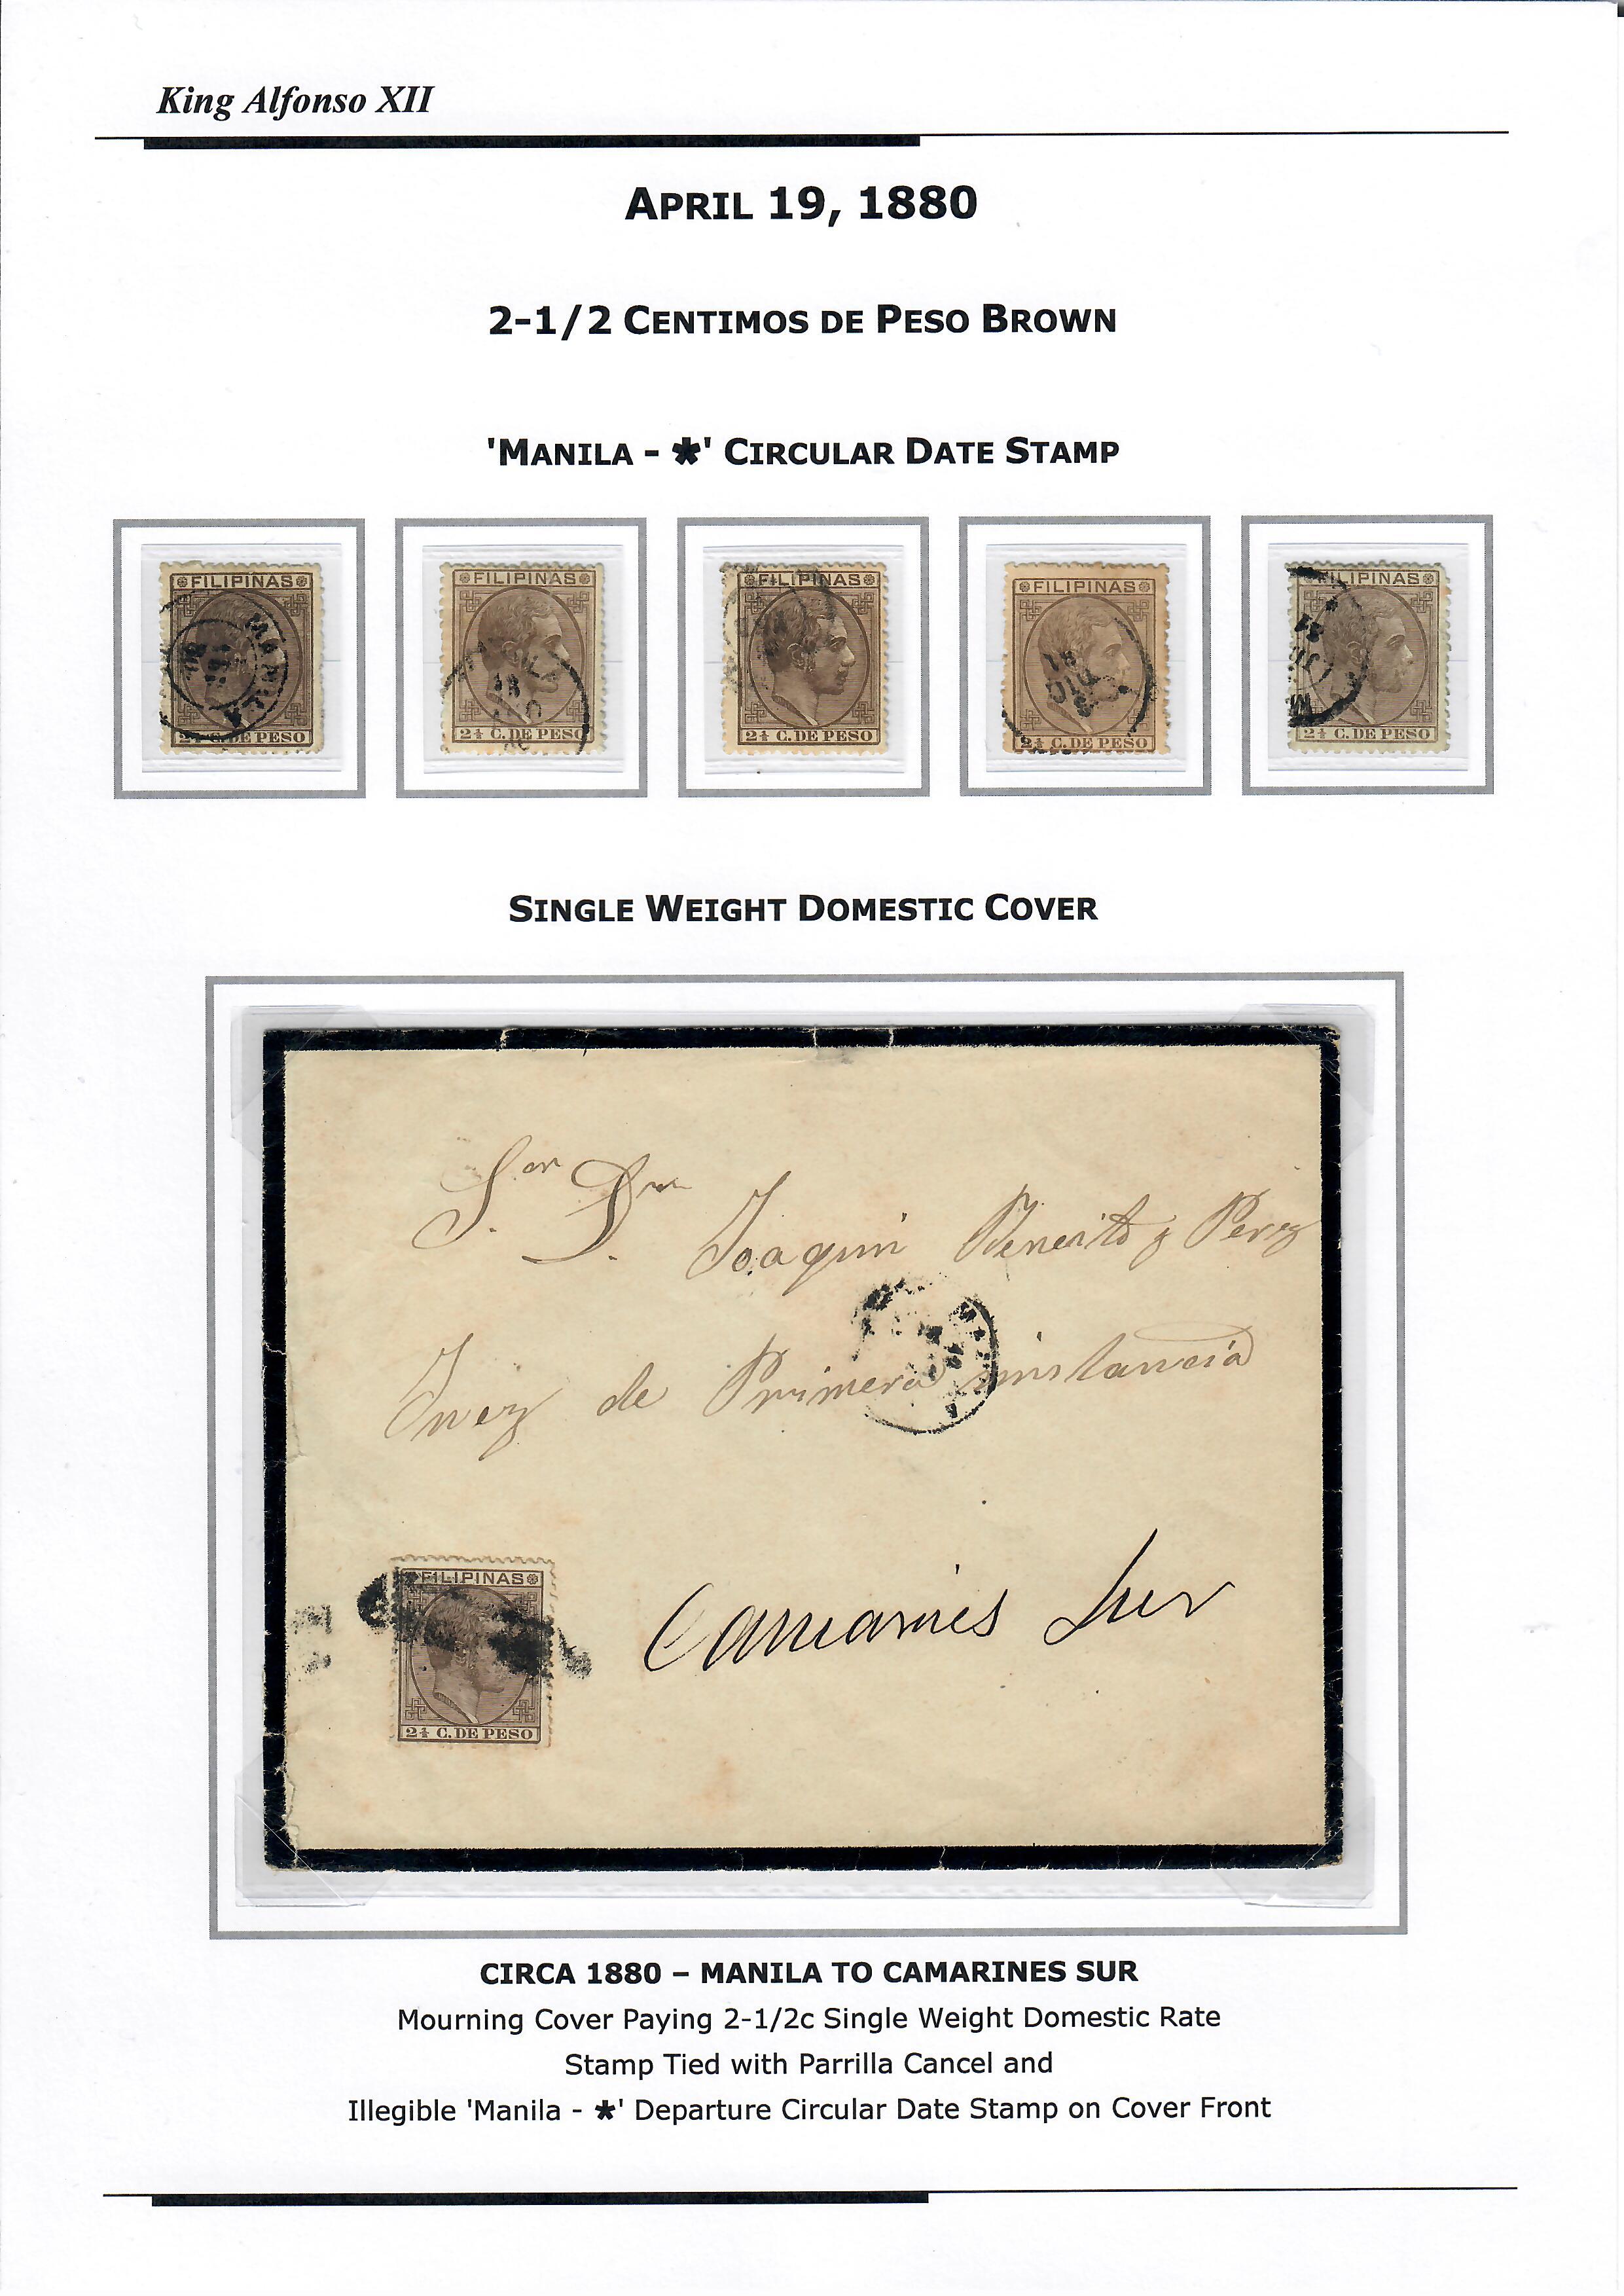 King Alfonso XII
APRIL 19, 1880
2-1/2 CENTIMOS DE PESO BROWN
'MANILA - *' CIRCULAR DATE STAMP
FILIPINAS
MANILA
2½ C. DE PESO
FILIPINAS
2½ C. DE PESO
FILIPINAS
2½ C. DE PESO
FILIPINAS
DIC
2½ C. DE PESO
FILIPINAS
2½ C. DE PESO
SINGLE WEIGHT DOMESTIC COVER
Sor Dn Joaquin Beneito y Perez
Juez de Primera instancia
Camarines Sur
FILIPINAS
2½ C. DE PESO
CIRCA 1880 – MANILA TO CAMARINES SUR
Mourning Cover Paying 2-1/2c Single Weight Domestic Rate
Stamp Tied with Parrilla Cancel and
Illegible 'Manila - *' Departure Circular Date Stamp on Cover Front